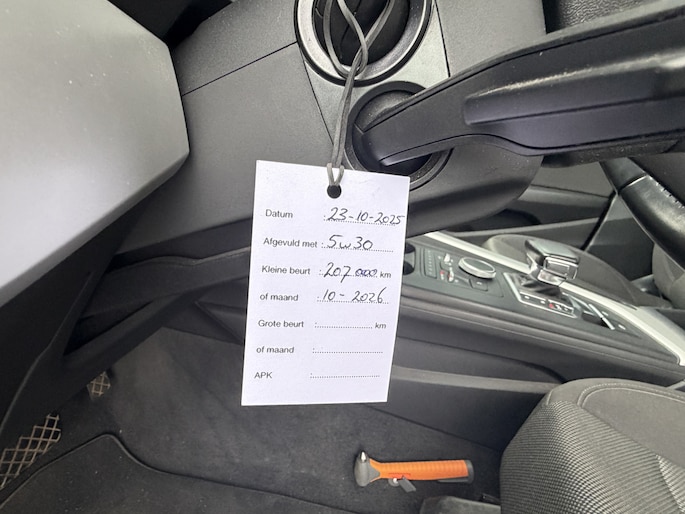 Datum : 23-10-2025
Afgevuld met : 5w30
Kleine beurt : 207.000 km
of maand : 10-2026
Grote beurt : km
of maand :
APK :